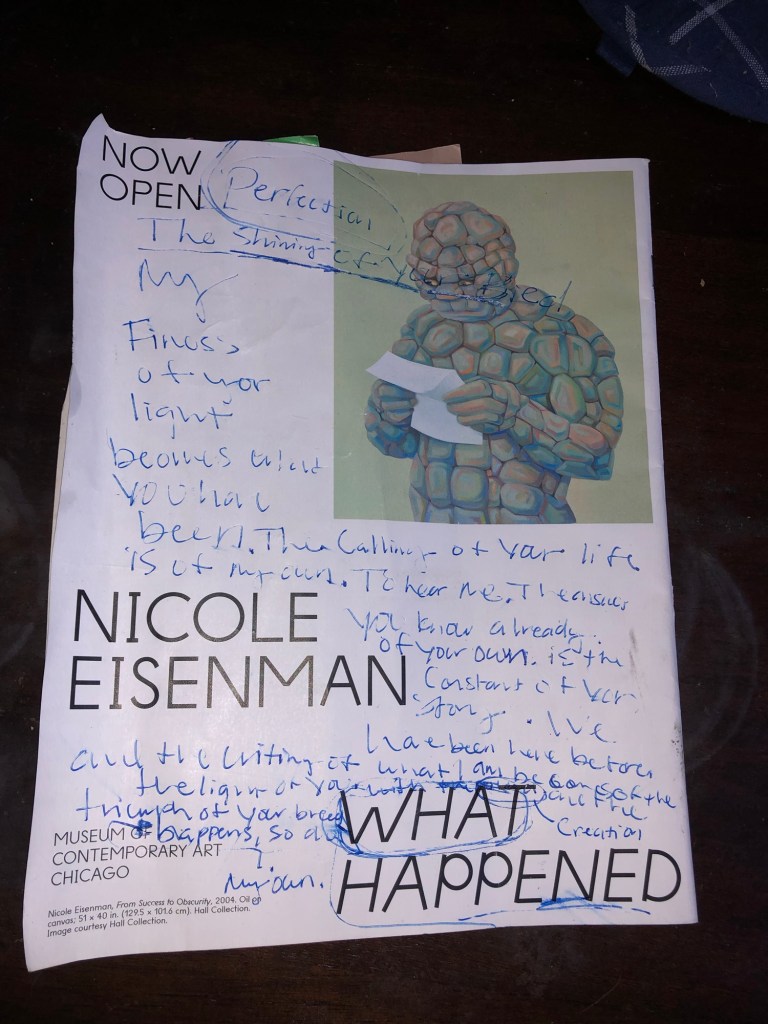 NOW
OPEN
Perfection
The Shining of Your Breed
My
of your
light
becomes what
You have
been. The Calling of Your life
is of my own. To hear me. The answer
NICOLE
EISENMAN
You know already.
of your own. is the
Constant of Your
Story. I've
have been here before
and the writing of what I am becomes of the
the light of You with
triumph of your breed
happens, so do
I
My own.
Creation
WHAT
HAPPENED
MUSEUM OF
CONTEMPORARY ART
CHICAGO
Nicole Eisenman, From Success to Obscurity, 2004. Oil on
canvas; 51 × 40 in. (129.5 × 101.6 cm). Hall Collection.
Image courtesy Hall Collection.